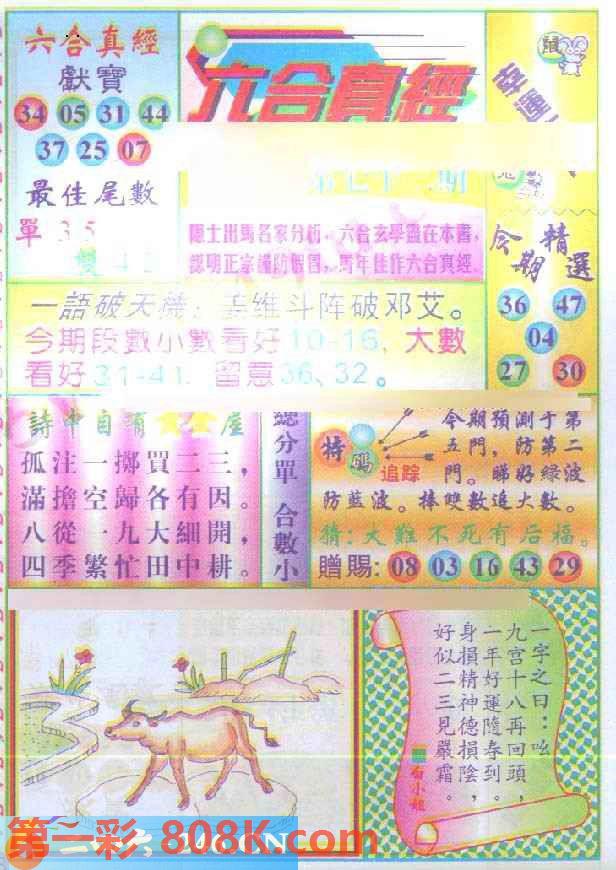 六合真經
獻寶
34 05 31 44
37 25 07
最佳尾數
單 3 5
六合真經
鼠
隱士出馬名家分析，六合玄學盡在本書，
部明正宗謹防假冒，馬年佳作六合真經
今期精選
36 47
04
27 30
一語破天機：姜维斗阵破邓艾。
今期段數小數看好10-16、大數
看好31-41、留意36、32。
詩中自有
孤注一擲買二三，
滿擔空歸各有因。
八從一九大細開，
四季繁忙田中耕。
總分單 合數小
特碼
追踪
今期預測于第
五門，防第二
門。睇好綠波
防藍波。捧雙數追大數。
猜：大難不死有后福。
贈賜：08 03 16 43 29
一字之曰：吆
九宫十八再回頭，
一年好運隨春到。
身損精神德損陰，
好似二三見嚴霜。
白小姐
第一彩 808K.com
246.CN